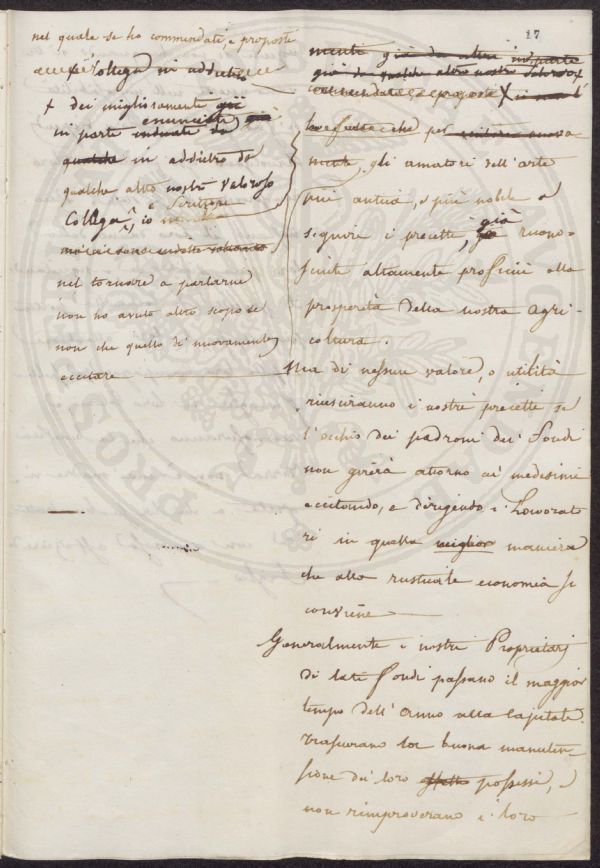 17
nel quale se ho commendati, e proposte
collega in addietro
x dei miglioramenti già
in parte enunciate
indicate da
qualche in addietro da
qualche altro nostro valoroso
Collega, e Scrittore
io
nel tornare a parlarne
non ho avuto altro scopo se
non che quello di nuovamente
eccitare
mente già da altri in parte
già da qualche altro nostro valoroso
commendate e proposte x
che per
mente, gli amatori dell'arte
più antica, e più nobile a
seguire i precetti, già ricono-
sciuti altamente proficui alla
prosperità della nostra agri-
coltura.
Ma di nessun valore, o utilità
riusciranno i nostri precetti se
l'occhio dei padroni dei fondi
non girerà attorno ai medesimi
eccitando, e dirigendo i Lavorat
ri in quella miglior maniera
che alla rusticale economia si
conviene
Generalmente i nostri Proprietarj
di lati fondi passano il maggior
tempo dell'Anno alla Capitale
trascurano la buona manuten-
sione de' loro possessi, e
non rimproverano i loro